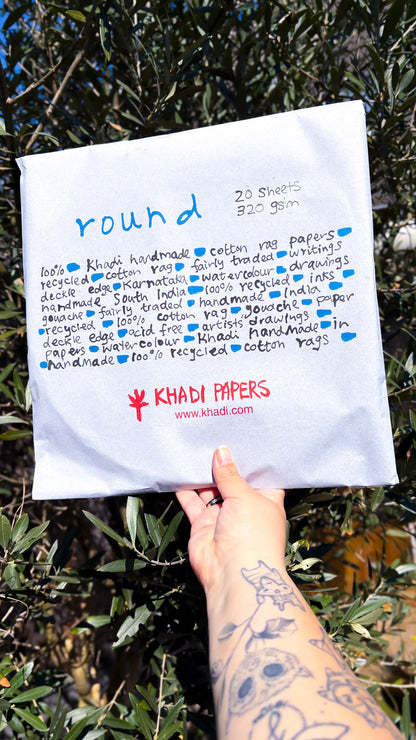 round
20 Sheets
320 gsm
100% Khadi handmade cotton rag papers
recycled cotton rag fairly traded writings
deckle edge Karnataka watercolour drawings
handmade South India 100% recycled inks
gouache fairly traded handmade India
recycled 100% cotton rag gouache paper
deckle edge acid free artists drawings in
papers watercolour Khadi handmade
handmade 100% recycled cotton rags
KHADI PAPERS
www.khadi.com